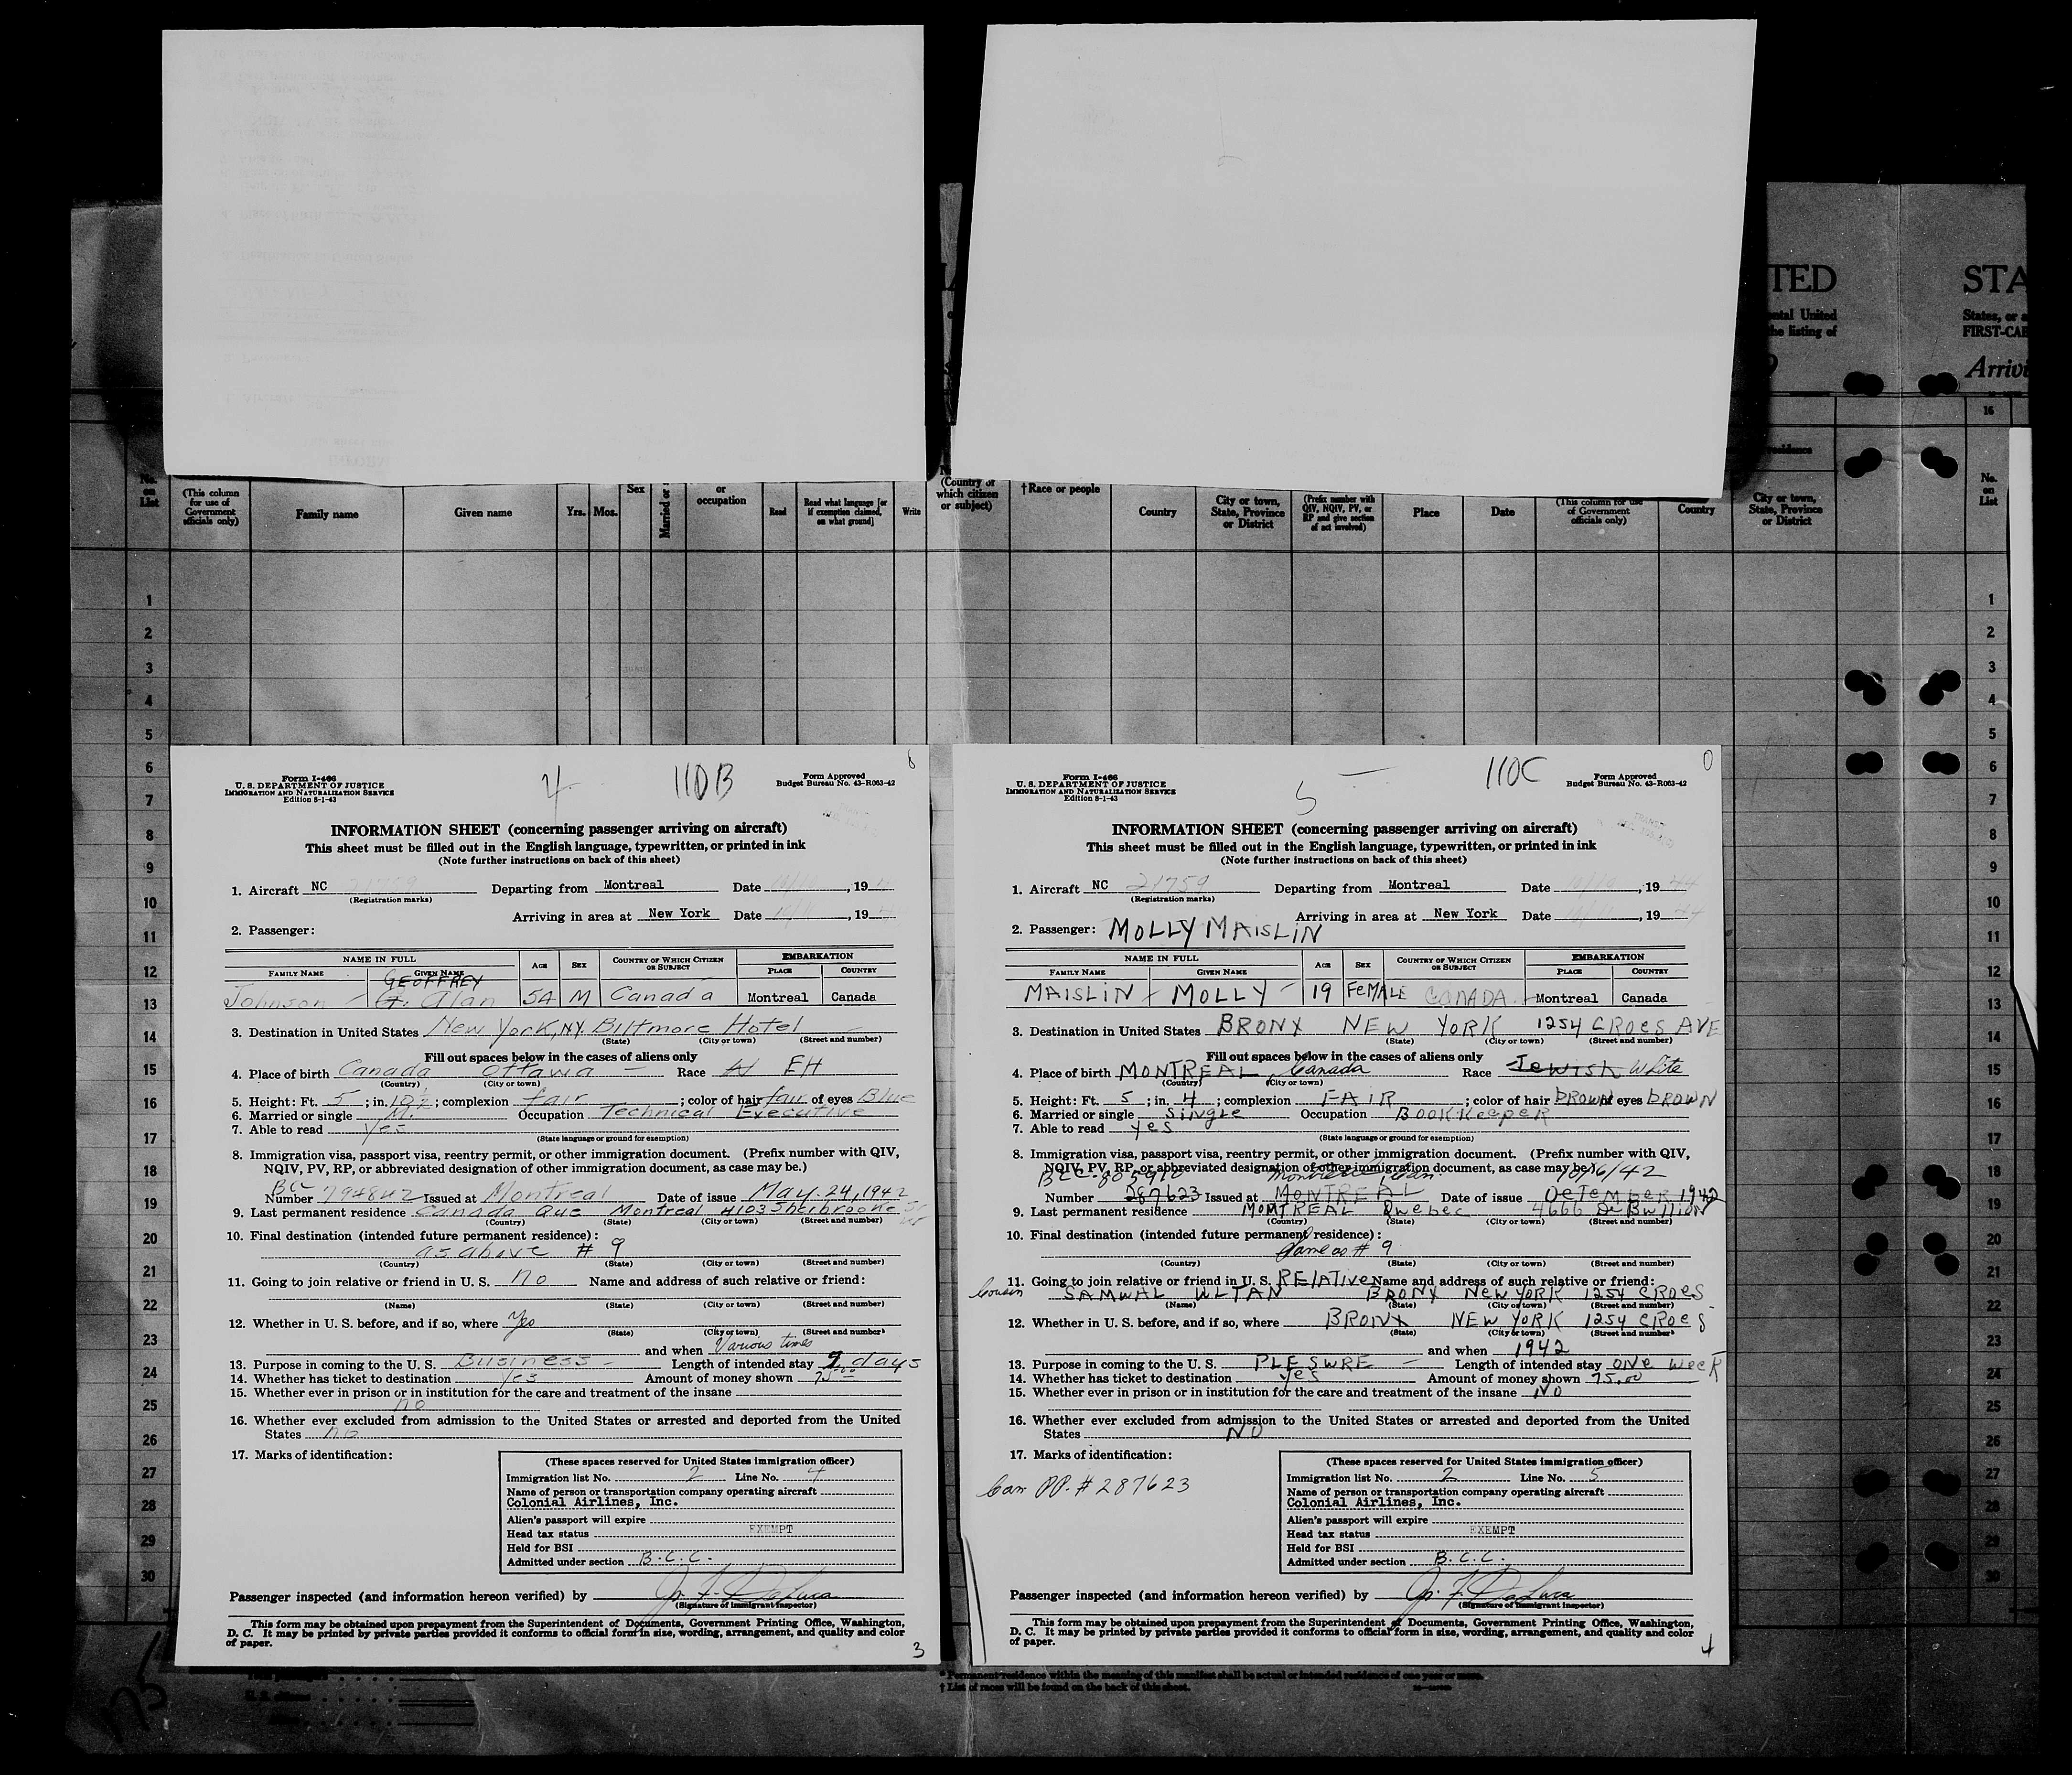 TED
STA
ental United
States, or a
the listing of
FIRST-CAB
Arrivi
16
residence
No.
on
List
(This column
for use of
Government
officials only)
Family name
Given name
Yrs.
Mos.
Sex
Married or
or
occupation
Read
Read what language [or
if exemption claimed,
on what ground]
Write
(Country of
which citizen
or subject)
†Race or people
Country
City or town,
State, Province
or District
(Prefix number with
QIV, NQIV, PV, or
RP and give section
of act involved)
Place
Date
(This column for use
of Government
officials only)
Country
City or town,
State, Province
or District
No.
on
List
1
2
3
4
5
6
7
8
9
10
11
12
13
14
15
16
17
18
19
20
21
22
23
24
25
26
27
28
29
30
Form I-466
U. S. DEPARTMENT OF JUSTICE
IMMIGRATION AND NATURALIZATION SERVICE
Edition 8-1-43
4
110B
Form Approved
Budget Bureau No. 43-R063-42
INFORMATION SHEET (concerning passenger arriving on aircraft)
This sheet must be filled out in the English language, typewritten, or printed in ink
(Note further instructions on back of this sheet)
1. Aircraft NC 21759 Departing from Montreal Date , 19
(Registration marks)
Arriving in area at New York Date , 19
2. Passenger:
NAME IN FULL AGE SEX COUNTRY OF WHICH CITIZEN OR SUBJECT EMBARKATION
FAMILY NAME GIVEN NAME PLACE COUNTRY
GEOFFREY
Johnson G. Alan 54 M Canada Montreal Canada
3. Destination in United States New York, NY. Biltmore Hotel
(State) (City or town) (Street and number)
Fill out spaces below in the cases of aliens only
4. Place of birth Canada Ottawa Race W EH
(Country) (City or town)
5. Height: Ft. 5; in. 10½; complexion fair; color of hair fair of eyes Blue
6. Married or single M. Occupation Technical Executive
7. Able to read Yes
(State language or ground for exemption)
8. Immigration visa, passport visa, reentry permit, or other immigration document. (Prefix number with QIV,
NQIV, PV, RP, or abbreviated designation of other immigration document, as case may be.)
BCC
Number 794842 Issued at Montreal Date of issue May. 24, 1942
9. Last permanent residence Canada Que Montreal 4103 Sherbrooke St
(Country) (State) (City or town) (Street and number)
10. Final destination (intended future permanent residence):
as above # 9
(Country) (State) (City or town) (Street and number)
11. Going to join relative or friend in U. S. no Name and address of such relative or friend:
(Name) (State) (City or town) (Street and number)
12. Whether in U. S. before, and if so, where Yes
(State) (City or town) (Street and number)
and when Various times
13. Purpose in coming to the U. S. Business Length of intended stay 9 days
14. Whether has ticket to destination Yes Amount of money shown 75.00
15. Whether ever in prison or in institution for the care and treatment of the insane
no
16. Whether ever excluded from admission to the United States or arrested and deported from the United
States no
17. Marks of identification:
(These spaces reserved for United States immigration officer)
Immigration list No. 2 Line No. 4
Name of person or transportation company operating aircraft
Colonial Airlines, Inc.
Alien's passport will expire
Head tax status EXEMPT
Held for BSI
Admitted under section B.C.C.
Passenger inspected (and information hereon verified) by
(Signature of immigrant inspector)
This form may be obtained upon prepayment from the Superintendent of Documents, Government Printing Office, Washington,
D. C. It may be printed by private parties provided it conforms to official form in size, wording, arrangement, and quality and color
of paper.
3
Form I-466
U. S. DEPARTMENT OF JUSTICE
IMMIGRATION AND NATURALIZATION SERVICE
Edition 8-1-43
5
110C
0
Form Approved
Budget Bureau No. 43-R063-42
INFORMATION SHEET (concerning passenger arriving on aircraft)
This sheet must be filled out in the English language, typewritten, or printed in ink
(Note further instructions on back of this sheet)
1. Aircraft NC 21759 Departing from Montreal Date , 19 44
(Registration marks)
Arriving in area at New York Date , 19 44
2. Passenger: MOLLY MAISLIN
NAME IN FULL AGE SEX COUNTRY OF WHICH CITIZEN OR SUBJECT EMBARKATION
FAMILY NAME GIVEN NAME PLACE COUNTRY
MAISLIN MOLLY 19 FEMALE CANADA Montreal Canada
3. Destination in United States BRONX NEW YORK 1254 CROES AVE
(State) (City or town) (Street and number)
Fill out spaces below in the cases of aliens only
4. Place of birth MONTREAL, Canada Race Jewish White
(Country) (City or town)
5. Height: Ft. 5; in. 4; complexion FAIR; color of hair BROWN eyes BROWN
6. Married or single Single Occupation BOOKKEEPER
7. Able to read yes
(State language or ground for exemption)
8. Immigration visa, passport visa, reentry permit, or other immigration document. (Prefix number with QIV,
NQIV, PV, RP, or abbreviated designation of other immigration document, as case may be.)
BCC Montreal Can. 10/6/42
Number 287623 Issued at MONTREAL Date of issue OCTEMBER 1942
9. Last permanent residence MONTREAL Quebec 4666 De Bullion
(Country) (State) (City or town) (Street and number)
10. Final destination (intended future permanent residence):
Same as # 9
(Country) (State) (City or town) (Street and number)
11. Going to join relative or friend in U. S. RELATIVE Name and address of such relative or friend:
Cousin SAMWAL ULTAN BRONX NEW YORK 1254 CROES
(Name) (State) (City or town) (Street and number)
12. Whether in U. S. before, and if so, where BRONX NEW YORK 1254 CROES
(State) (City or town) (Street and number)
and when 1942
13. Purpose in coming to the U. S. PLESURE Length of intended stay ONE WEEK
14. Whether has ticket to destination yes Amount of money shown 75.00
15. Whether ever in prison or in institution for the care and treatment of the insane NO
16. Whether ever excluded from admission to the United States or arrested and deported from the United
States NO
17. Marks of identification:
Can PP. # 287623
(These spaces reserved for United States immigration officer)
Immigration list No. 2 Line No. 5
Name of person or transportation company operating aircraft
Colonial Airlines, Inc.
Alien's passport will expire
Head tax status EXEMPT
Held for BSI
Admitted under section B.C.C.
Passenger inspected (and information hereon verified) by
(Signature of immigrant inspector)
This form may be obtained upon prepayment from the Superintendent of Documents, Government Printing Office, Washington,
D. C. It may be printed by private parties provided it conforms to official form in size, wording, arrangement, and quality and color
of paper.
4
* Permanent residence within the meaning of this manifest shall be actual or intended residence of one year or more.
† List of races will be found on the back of this sheet.